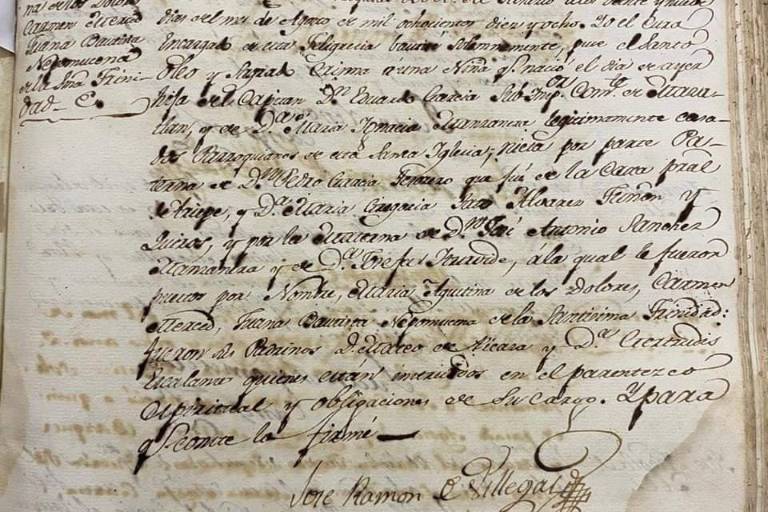 na de los Dolor.
Carmen Merced
Juana Bautista
Nepomucena
de la Sma Trini-
dad. E.
dias del mes de Agosto de mil ochocientos diez y ocho. Yo el Cura
Encargad. de esta Feligrecia bautisé solemnemente, puse el Santo
Oleo y Sagrad. Crisma á una Niña q.e nació el dia de ayer
hija del Capitan D.n Eduard. Garcia Sub Insp.or Com.te de Mazatlan
tlan, y de D.a Maria Ignacia Manzanza legitimamente casa-
dos Parroquianos de esta Santa Iglesia, Nieta por parte Pa-
terna de D.n Pedro Garcia Tesorero que fué de la Caxa pral
de Arispe, y D.a Maria Gregoria Alvarez Tuñon y
Quiros, y por la Materna de D.n José Antonio Sanchez
Manzanza y de D.a Josefa Yturvide, á la qual le fueron
puestos por Nombre, Maria Agustina de los Dolores, Carmen
Merced, Juana Bautista Nepomucena de la Santisima Trinidad:
fueron sus Padrinos D. Mateo de Vicara y D.a Gertrudis
Escalante quienes estan instruidos en el parentezco
espiritual y obligaciones de su cargo. Y para
q.e conste lo firmé
José Ramon de Villegas